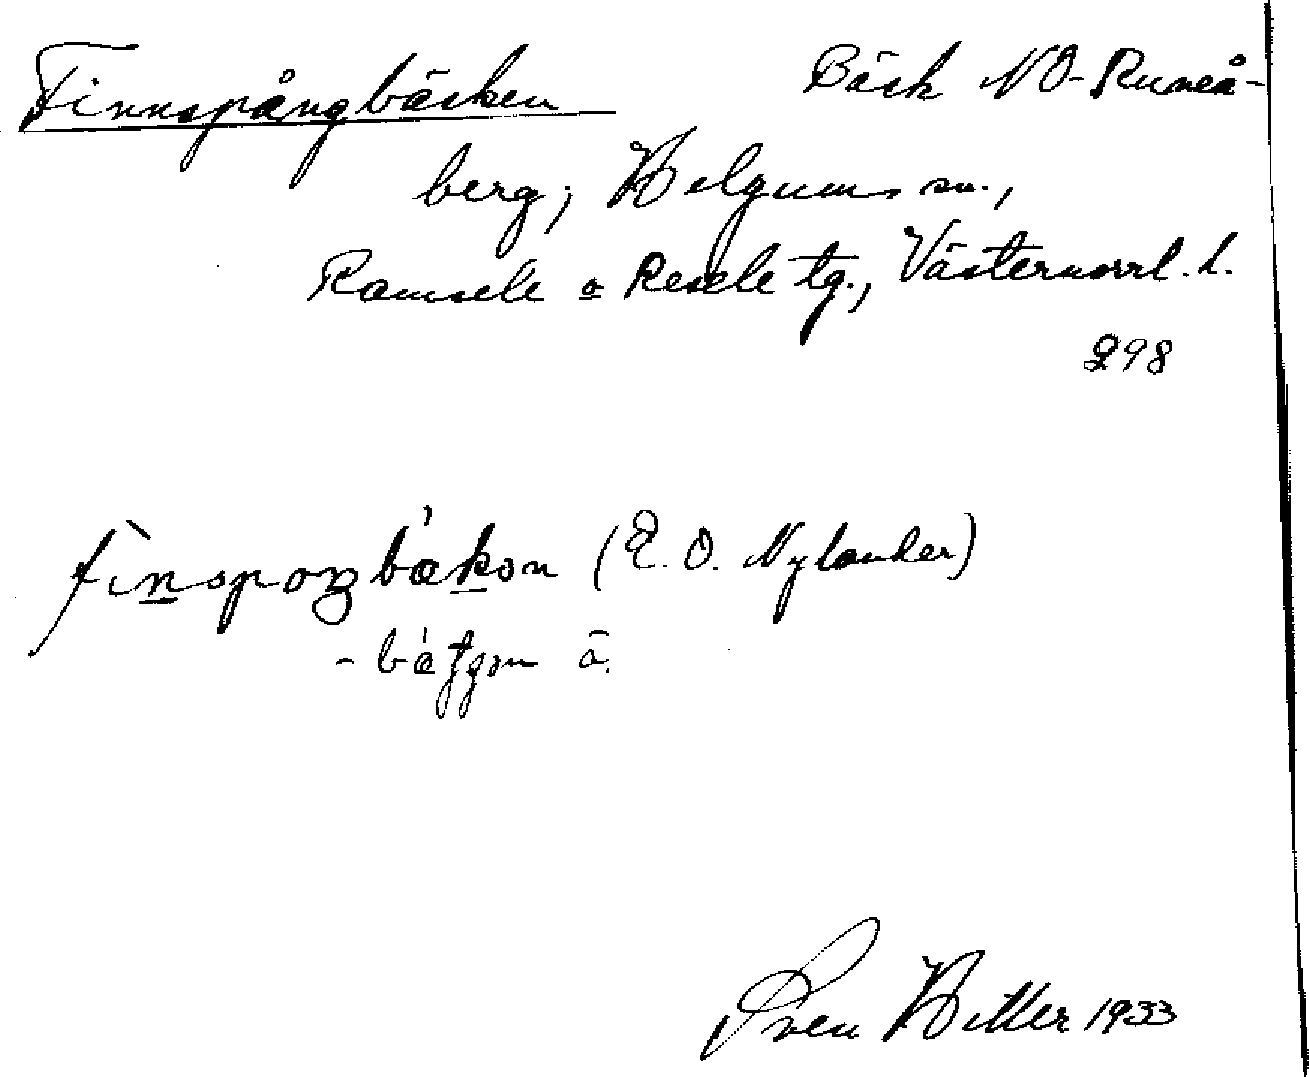 Finnspångbäcken Bäck NO-Runeå-
berg; Helgums sn.,
Ramsele o Resele tg., Västernorrl. l.
298
fìnspoŋbákən (E. O. Nylander)
- bátjɡən ä.
Sven Hitter 1933